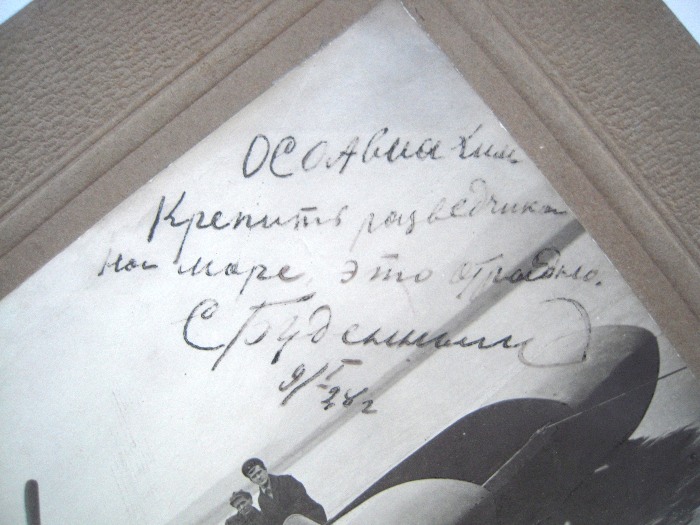 ОСОАвиаХим
Крепить разведчика
на море, это отрадно.
С Буденный
9/V
28 г